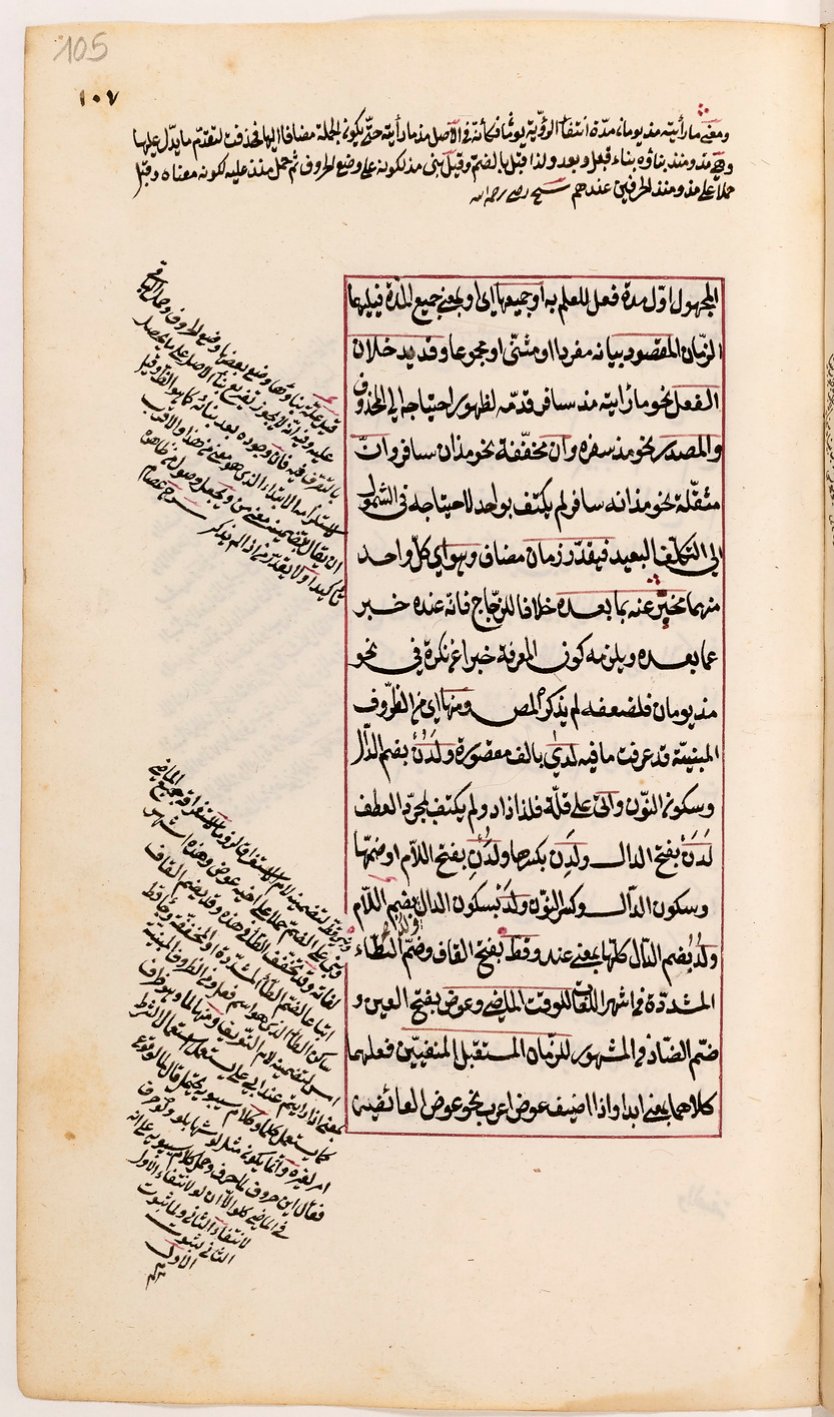 105
١٠٧
ومعنى ما رأيته مذ يومان مدة انتفاء الرؤية يومان فكأنه في الأصل مذ ما رأيته حتى يكون الجملة مضافا اليها فحذفت لتقدم ما يدل عليها
وهي مذ ومنذ بناؤه بناء قبل وبعد ولذا قيل بالضم وقيل بنى مذ لكونه على وضع الحروف ثم حمل منذ عليه لكونه معناه وقيل
حملا على مذ ومنذ الحرفين عندهم شيخ رضى رحمه الله
المجهول اوّل مدة فعل للعلم به او جميعها اى او بمعنى جميع المدة فيليهما
الزمان المقصود بيانه مفردا او مثنّى او مجموعا وقد يدخلان
الفعل نحو ما رأيته مذ سافر قدّمه لظهور احتياجه الى المحذوف
والمصدر نحو مذ سفره وان مخففة نحو مذ ان سافر وانّ
مثقّلة نحو مذ انه سافر لم يكتف بواحد لاحتياجه فى الشمول
الى التكلف البعيد فيقدّر زمان مضاف وهو اى كلّ واحد
منهما مخبر عنه بما بعده خلافا للزجاج فانه عنده خبر
عما بعده ويلزمه كون المعرفة خبرا عن نكرة فى نحو
مذ يومان فلضعفه لم يذكره المص ومنها اى من الظروف
المبنيّة قد عرفت ما فيه لدى بالف مقصورة ولدن بضم الدّال
وسكون النّون واتى على قلّة فلذا زاد ولم يكتف لمجرّد العطف
لدن بفتح الدال ولدن بكسرها ولدن بفتح اللام او ضمّها
وسكون الدّال وكسر النّون ولد بسكون الدال بضم اللّام
ولد بضم الدّال كلها بمعنى عند وقطّ بفتح القاف وضمّ الطّاء
المشدّدة فى اشهر اللّغات للوقت الماضى وعوض بفتح العين و
ضمّ الضّاد فى المشهور للزمان المستقبل المنفيّين فعلهما
كلاهما بمعنى ابدا واذا اضيف عوض اعرب نحو عوض العائضين
قيل علة بنائها وضع بعضها وضع الحروف وحمل الباقى
عليه وفيه انه لا يجوز تفريع بناء الاصل على ما يحصل
بالتصرف فيه فان وجوده بعد بنائه كما هو القدّ وقيل
لاستلزامه الابتداء الذى هو معنى من هذا والاقرب
ان يقال لتضمينه معنى من ويجعل وصوله من ظاهره
تأكيدا او لا يقدر من اذا لم يذكر شرح عصام
وبنى قطّ لتضمينه لام الاستغراق لزوما لاستغراقه جميع الماضى
وبنى على الضم حملا على اخيه عوض وهذه اشهر
لغاته وقد يخفف الطاء وهذه وقد يضم القاف
اتباعا لضم الطاء المشددة او المخففة وجاء قط
ساكن الطاء الذى هو اسم فعل ومن الظروف المبنية
امس لتضمينه لام التعريف ومنها لما وهو ظرف
بمعنى اذا رايتم عند ابى على يستعمل استعمال الشرط
كما يستعمل كلما وكلام سيبويه يحتمل قال لما لوقوع
امر لغيره وانما يكون مثل لو شبهها بلو ولو حرف
فقال ابن خروف لما حرف وحمل كلام سيبويه على انه
فى الماضى كلو الا ان لو لانتفاء الاول
لانتفاء الثانى ولما ثبوت
الثانى لثبوت
الاول